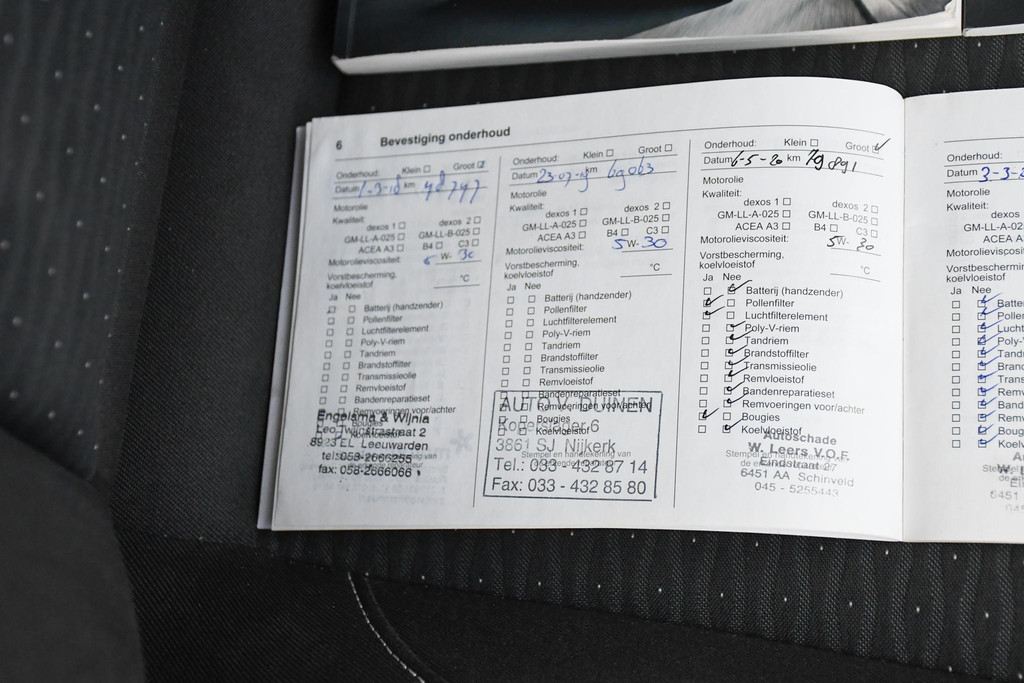 6 Bevestiging onderhoud
Onderhoud: Klein ☐ Groot ☑
Datum 1-3-18 km
Motorolie
Kwaliteit:
dexos 1 ☐ dexos 2 ☐
GM-LL-A-025 ☐ GM-LL-B-025 ☐
ACEA A3 ☐ B4 ☐ C3 ☐
Motorolieviscositeit: 5 W- 30
Vorstbescherming,
koelvloeistof °C
Ja Nee
Batterij (handzender)
Pollenfilter
Luchtfilterelement
Poly-V-riem
Tandriem
Brandstoffilter
Transmissieolie
Remvloeistof
Bandenreparatieset
Remvoeringen voor/achter
Bougies
Koelvloeistof
Engelsma & Wijnia
Leo Twijnstrastraat 2
8923 EL Leeuwarden
tel: 058-2666255
fax: 058-2666066
Onderhoud: Klein ☐ Groot ☐
Datum 23-07-19 km 69063
Motorolie
Kwaliteit:
dexos 1 ☐ dexos 2 ☐
GM-LL-A-025 ☐ GM-LL-B-025 ☐
ACEA A3 ☐ B4 ☐ C3 ☐
Motorolieviscositeit: 5 W- 30
Vorstbescherming,
koelvloeistof °C
Ja Nee
Batterij (handzender)
Pollenfilter
Luchtfilterelement
Poly-V-riem
Tandriem
Brandstoffilter
Transmissieolie
Remvloeistof
Bandenreparatieset
Remvoeringen voor/achter
Bougies
Koelvloeistof
Stempel en handtekening van
AUTO V. DUINEN
6
3861 SJ Nijkerk
Tel.: 033 - 432 87 14
Fax: 033 - 432 85 80
Onderhoud: Klein ☐ Groot ☑
Datum 6-5-20 km 79891
Motorolie
Kwaliteit:
dexos 1 ☐ dexos 2 ☐
GM-LL-A-025 ☐ GM-LL-B-025 ☐
ACEA A3 ☐ B4 ☐ C3 ☐
Motorolieviscositeit: 5W- 30
Vorstbescherming,
koelvloeistof °C
Ja Nee
Batterij (handzender)
Pollenfilter
Luchtfilterelement
Poly-V-riem
Tandriem
Brandstoffilter
Transmissieolie
Remvloeistof
Bandenreparatieset
Remvoeringen voor/achter
Bougies
Koelvloeistof
Stempel en handtekening van
Autoschade
W. Leers V.O.F.
Eindstraat 27
6451 AA Schinveld
045 - 5255443
Onderhoud:
Datum 3-3-2
Motorolie
Kwaliteit:
dexos
GM-LL-A-02
ACEA A
Motorolieviscos
Vorstbeschermi
koelvloeistof
Ja Nee
Batte
Polle
Luch
Poly-
Tand
Bran
Tran
Rem
Band
Rem
Boug
Koel
6451